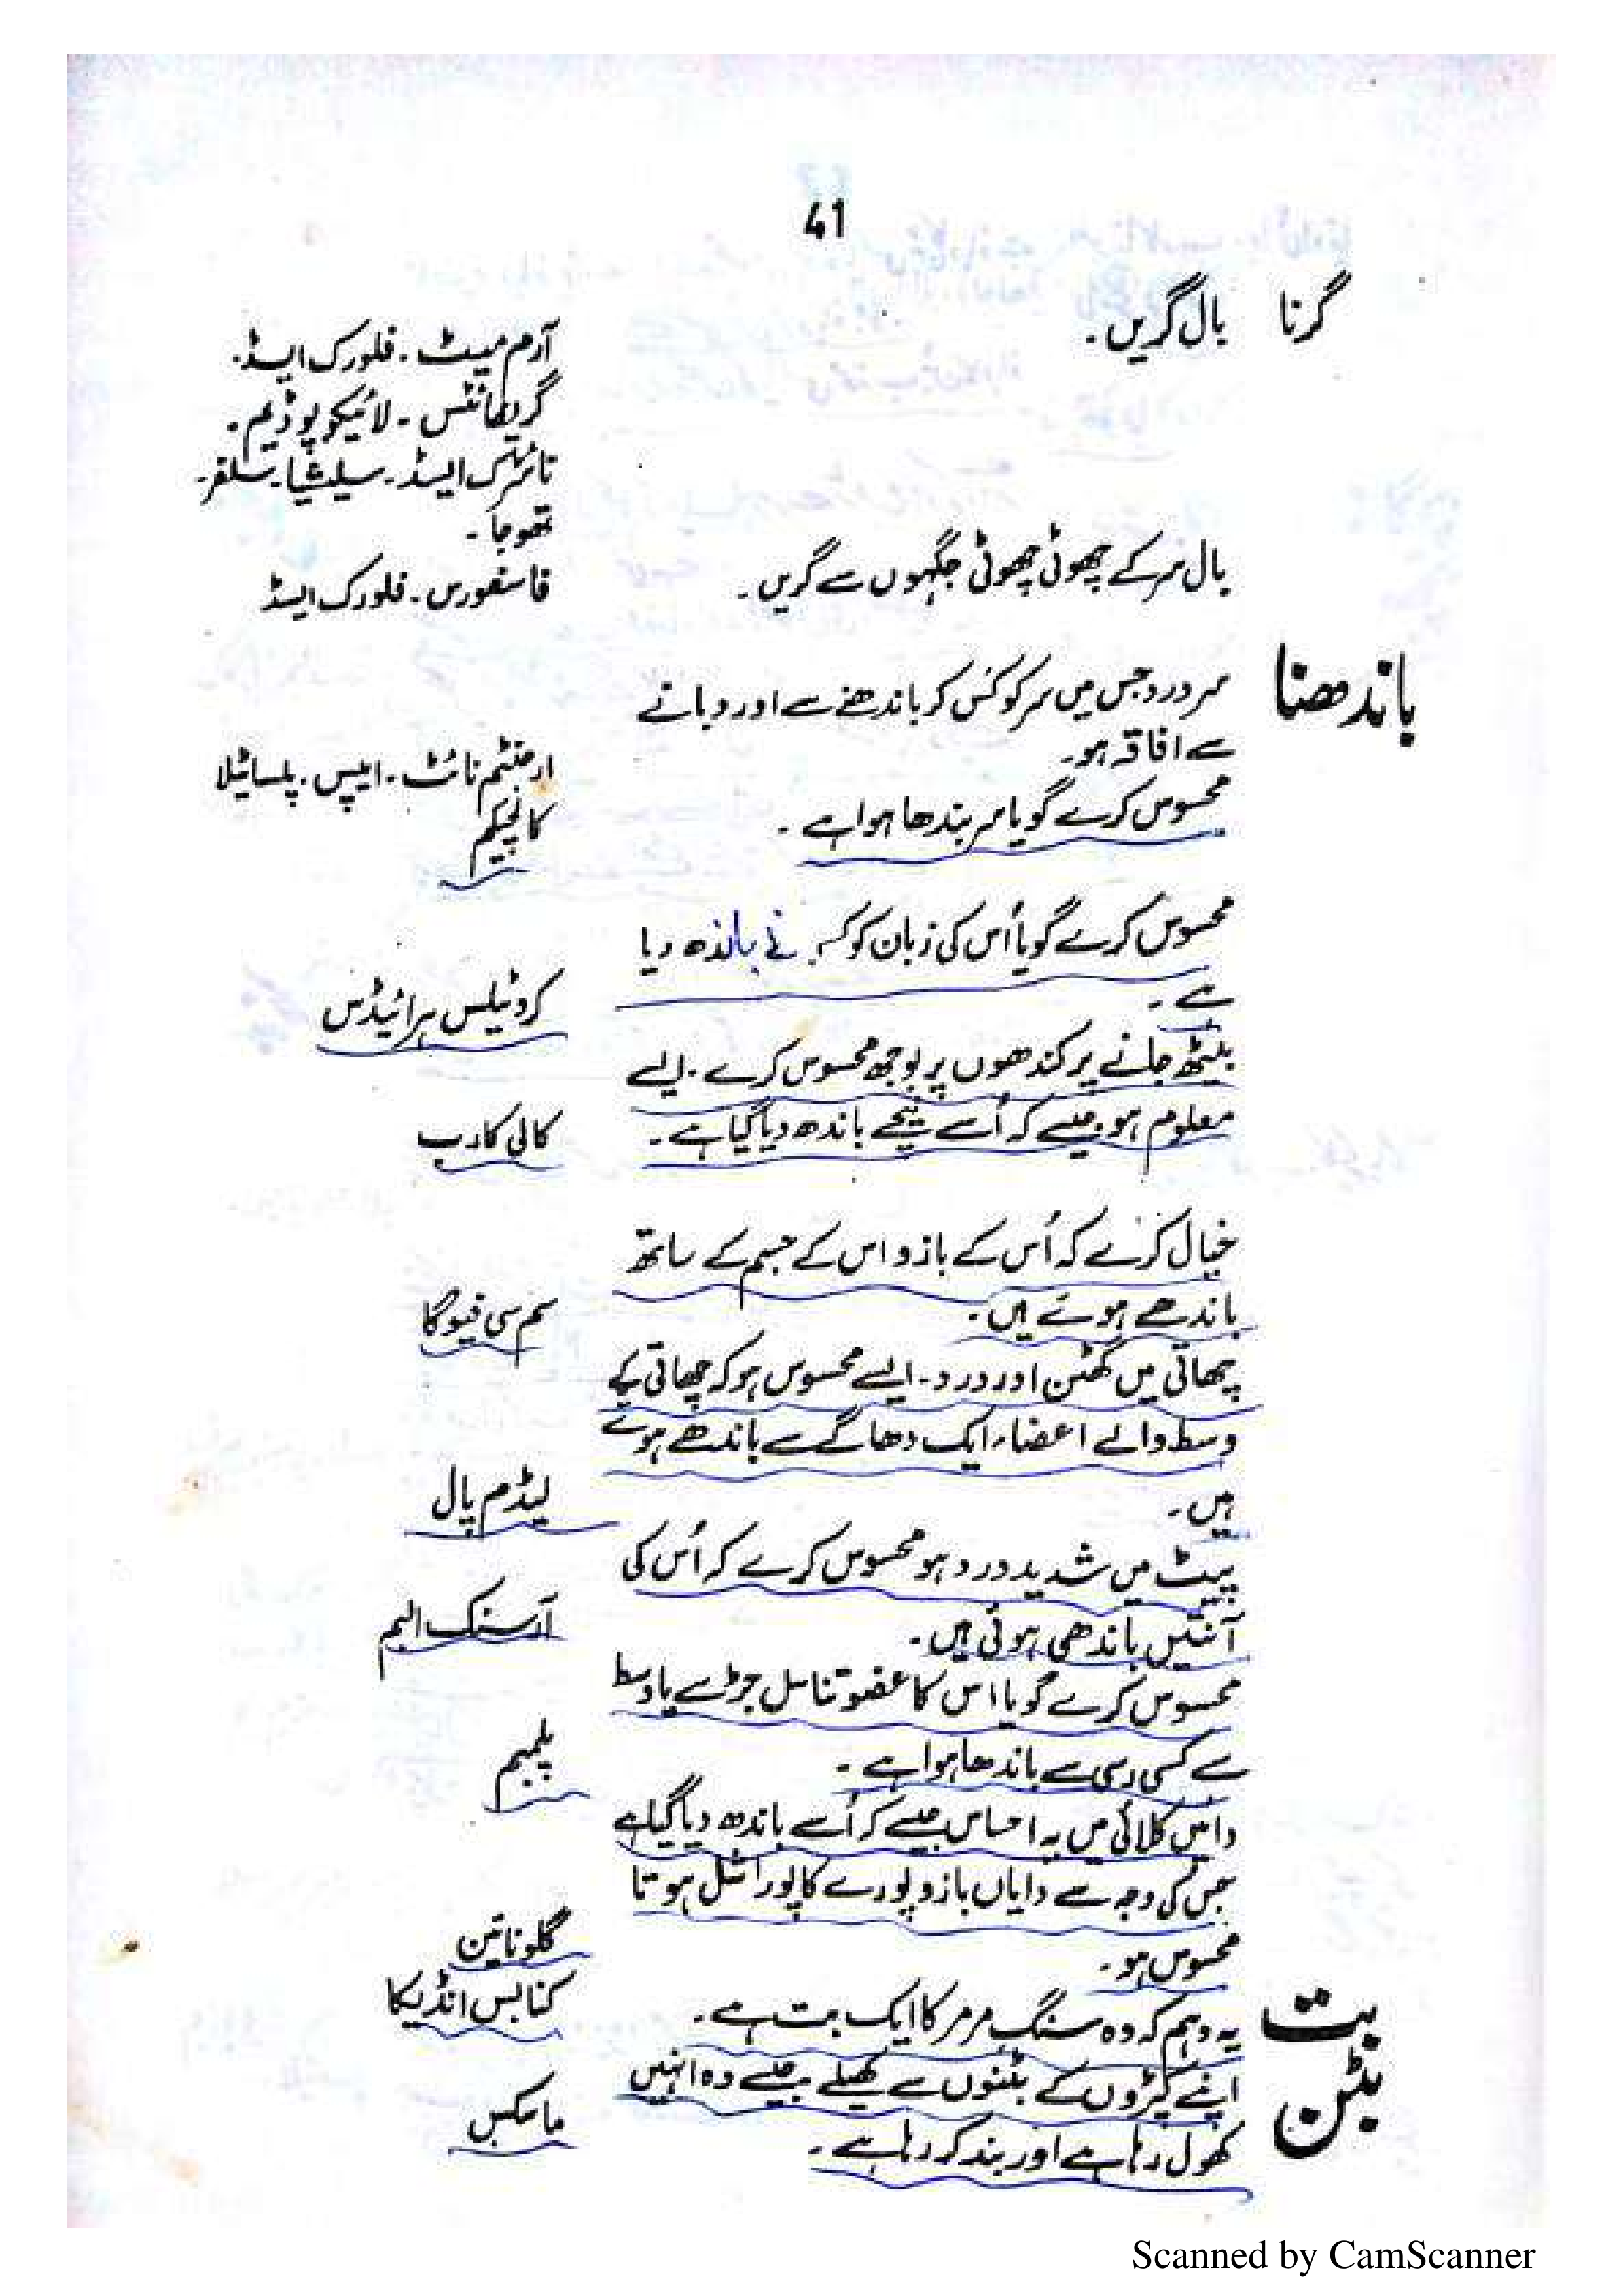 41
گرنا بال گریں۔
آرم میٹ۔ فلورک ایسڈ۔
گریفائٹس۔ لائیکوپوڈیم۔
نائٹرک ایسڈ۔ سیلیشیا۔ سلفر۔
تھوجا۔
بال سر کے چھوٹی چھوٹی جگہوں سے گریں۔
فاسفورس۔ فلورک ایسڈ
باندھنا سر درد جس میں سر کو کس کر باندھنے سے اور دبانے
سے افاقہ ہو۔
ارجنٹم نائٹ۔ ایپس۔ پلساٹیلا
محسوس کرے گویا سر بندھا ہوا ہے۔
کالچیکم
محسوس کرے گویا اُس کی زبان کو کسی نے باندھ دیا
ہے۔
کروٹیلس ہرائیڈس
بیٹھ جانے پر کندھوں پر بوجھ محسوس کرے۔ ایسے
معلوم ہو جیسے کہ اُسے نیچے باندھ دیا گیا ہے۔
کالی کارب
خیال کرے کہ اُس کے بازو اس کے جسم کے ساتھ
باندھے ہوئے ہیں۔
سم سی فیوگا
چھاتی میں گھٹن اور درد۔ ایسے محسوس ہو کہ چھاتی کے
وسط والے اعضاء ایک دھاگے سے باندھے ہوئے
ہیں۔
لیڈم پال
پیٹ میں شدید درد ہو محسوس کرے کہ اُس کی
آنتیں باندھی ہوئی ہیں۔
آرسنک البم
محسوس کرے گویا اس کا عضو تناسل جڑ سے یا وسط
سے کسی رسی سے باندھا ہوا ہے۔
پلمبم
دائیں کلائی میں یہ احساس جیسے کہ اُسے باندھ دیا گیا ہے
جس کی وجہ سے دایاں بازو پورے کا پورا شل ہوتا
محسوس ہو۔
گلونائین
بت یہ وہم کہ وہ سنگِ مرمر کا ایک بت ہے۔
کنابس انڈیکا
بٹن اپنے کپڑوں کے بٹنوں سے کھیلے جیسے وہ انہیں
کھول رہا ہے اور بند کر رہا ہے۔
ماسکس
Scanned by CamScanner